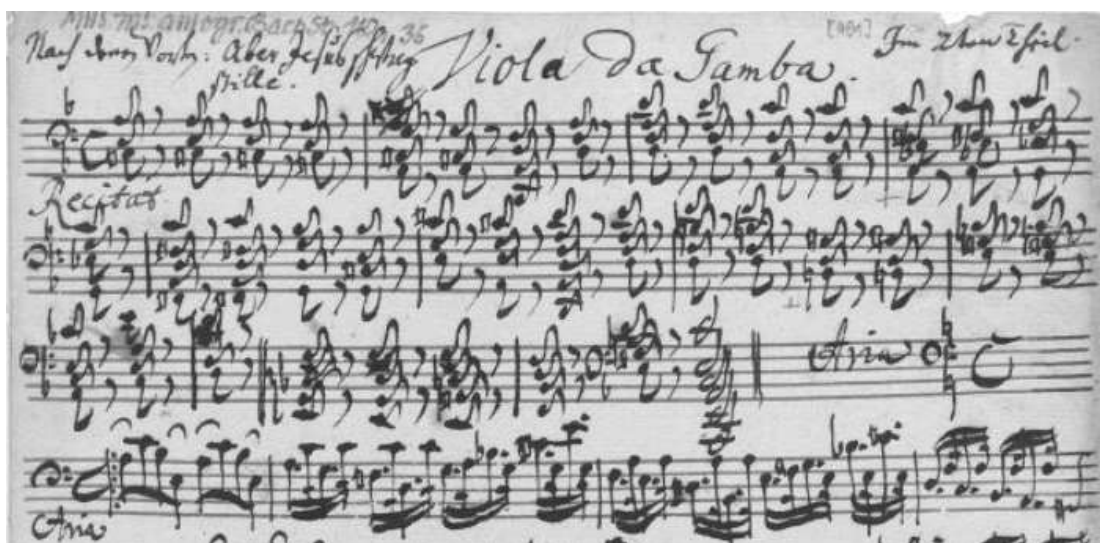 Mus. ms. autogr. Bach St 110
36
[981]
Nach denen Worten: Aber Jesus schwieg
stille.
Viola da Gamba.
Im 2ten Theil.
Recitat
Aria
Aria